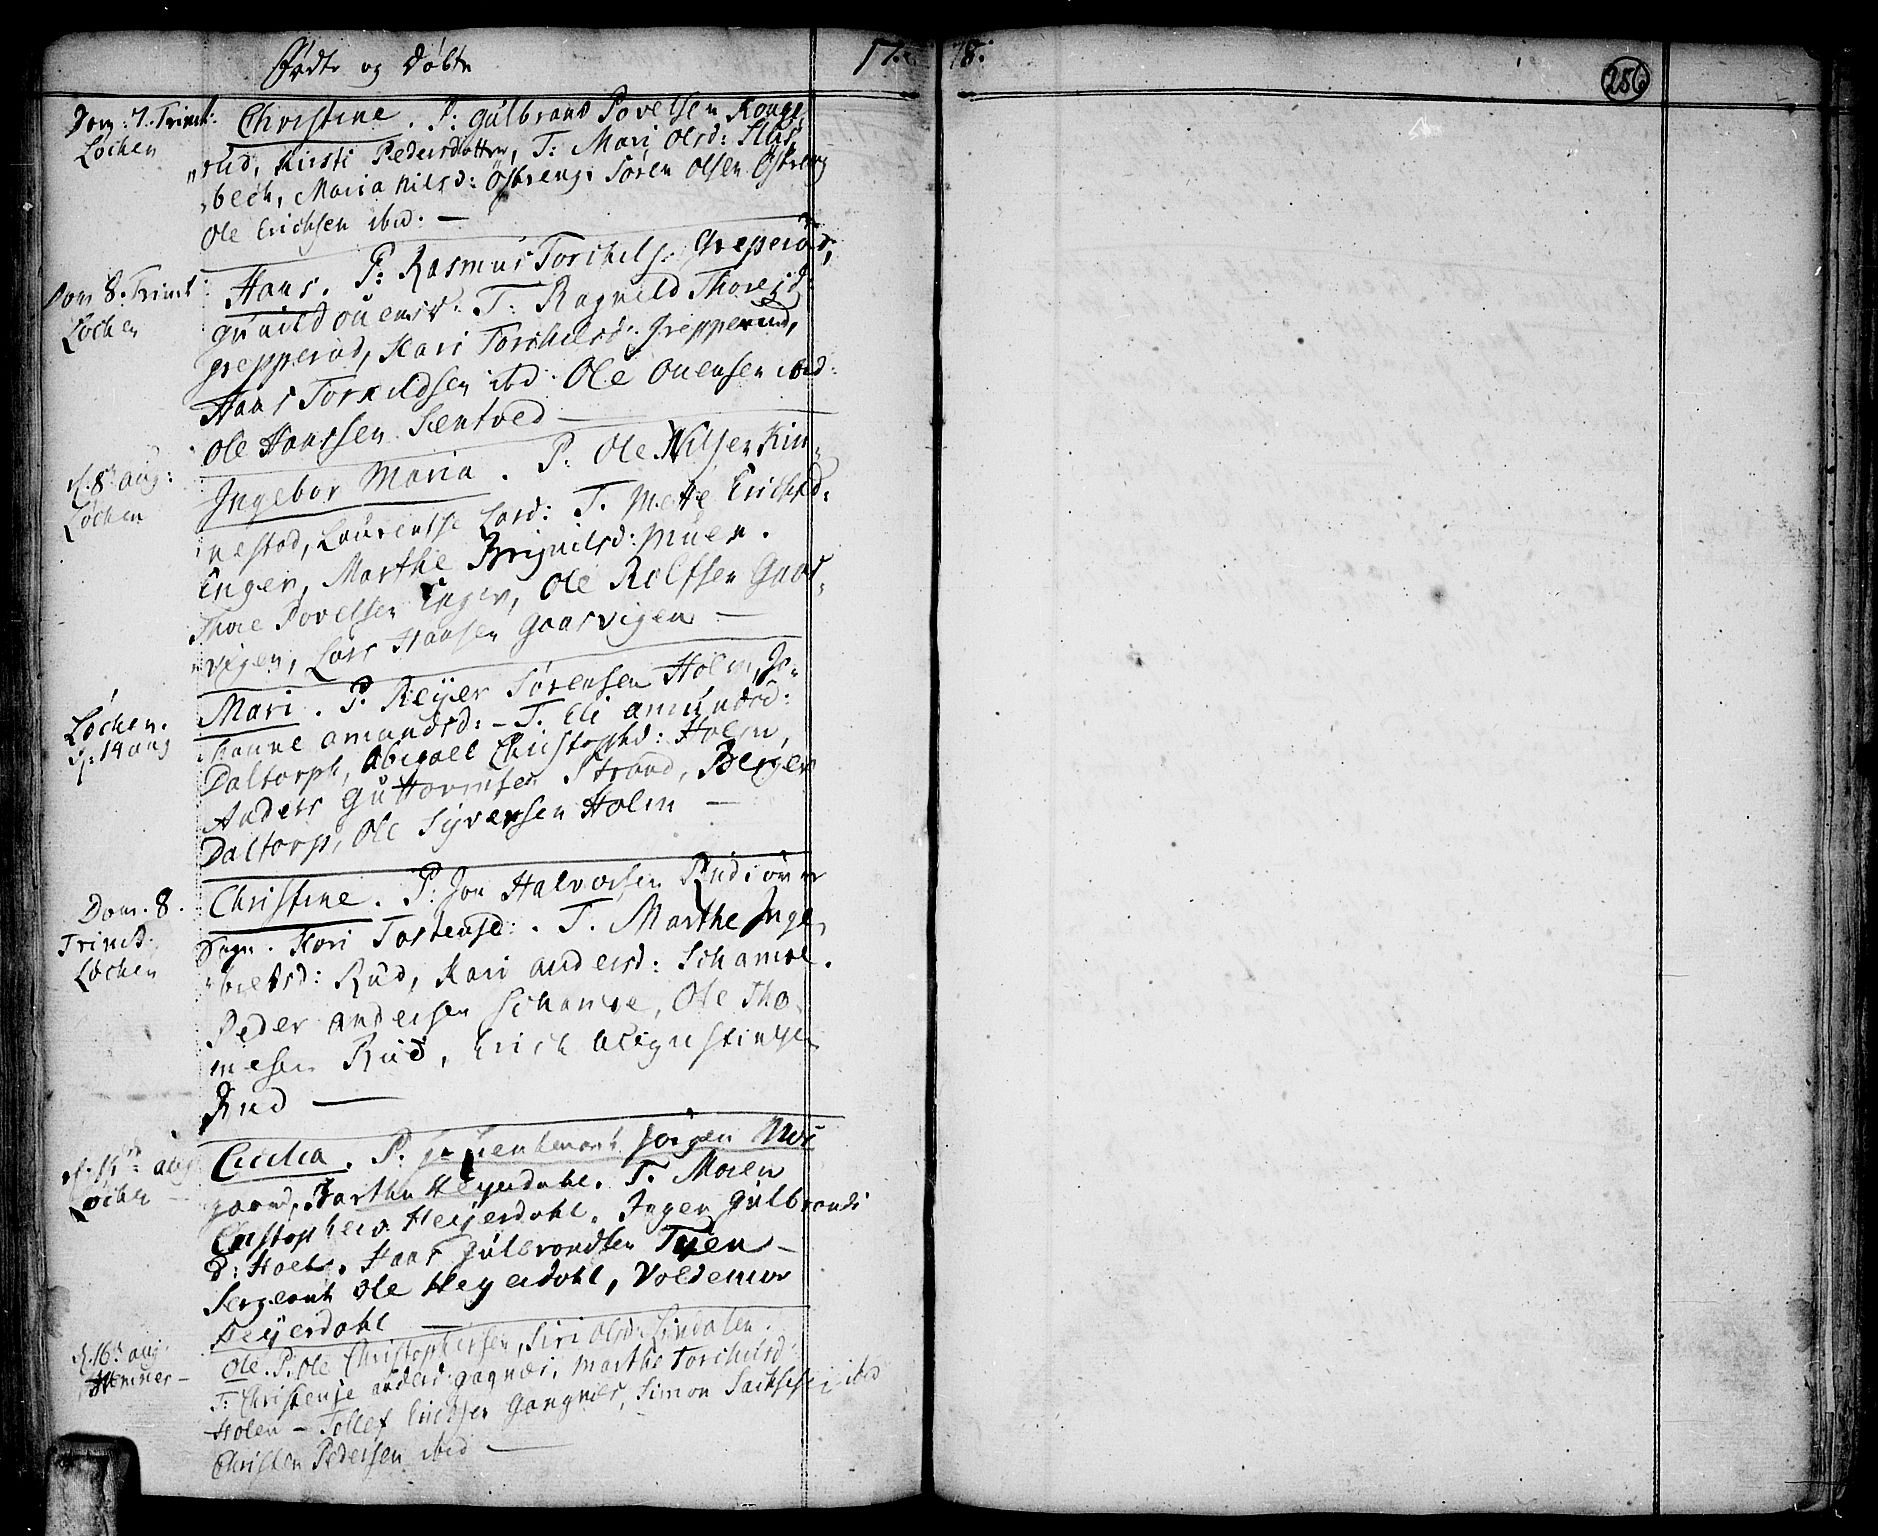 Fødte og Døbte 17. 78.
286
Dom: 7. Trinit:
Løchen
Christine. P: Gulbrand Povelsen Konge
"rud, Kirsti Pedersdatter, T: Mari Olsd: Slas
"bech, Maria Nilsd: Østreng. Søren Olsen Østreng
Ole Erichsen ibid: —
Dom 8. Trinit
Løchen
Hans. P: Rasmus Torchels: Grepperud,
Gunild Ouensd: T: Ragnild Thoresd
Grepperud, Kari Torchilsd: Grepperud,
Hans Torkildsen ibd: Ole Ouensen ibid:
Ole Hanssen Sentved —
d. 8de aug:
Løchen
Ingebor Maria. P: Ole Nilsen Kin-
"nestad, Laurentse Larsd: T. Mette Erichsd:
Enger, Marthe Brignilsd: Muen.
Thore Povelsen Enger, Ole Rolfsen Gaas-
"vigen, Lars Hansen Gaasvigen —
Løchen.
d: 14 aug
Mari. P. Reyer Sørensen Holm, Jo-
hanne Amundsd: - T. Eli Amundsd:
Daltorph, Abigael Christophd: Holm,
Anders Guttormsen Strand, Berger
Daltorp, Ole Syversen Holm —
Dom. 8.
Trinit:
Løchen
Christine. P: Jon Halvorsen Rud i
Sogn. Kari Tostensd: . T. Marthe Inge,
"bretsd: Rud, Kari Andersd: Schamse.
Peder Andersen Schamse, Ole Tho-
mesen Rud, Erich Augustinsen
Rud —
aug
Løchen —
Cecilia. P: Lieutenant Jørgen
gaard, Heyerdahl. T. Maren
Christophera Heyerdahl. Ingen Gulbrands
d: Holt. Hans Gulbrandsen Tyen —
Sergeant Ole Heyerdahl, Voldemor
Heyerdahl —
d. 16de aug.
Hemnes —
Ole. P. Ole Christophersen, Siri Olsd: Lindalen.
T: Christense Andersd. Gagnæs, Marthe Torchilsd:
Holen — Tollef Erichsen Gangnæs, Simon ibid
Christen Pedersen ibid —